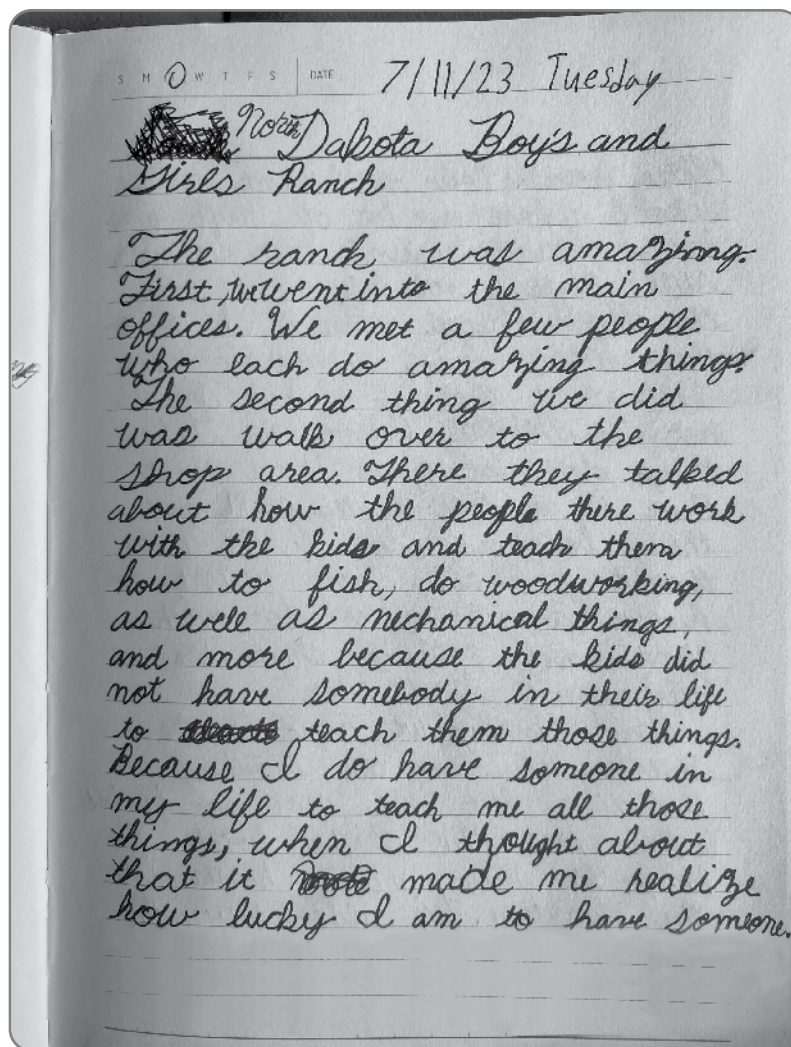 S M T W T F S DATE 7/11/23 Tuesday
North Dakota Boy's and
Girls Ranch
The ranch was amazing.
First, we went into the main
offices. We met a few people
who each do amazing things.
The second thing we did
was walk over to the
shop area. There they talked
about how the people there work
with the kids and teach them
how to fish, do woodworking,
as well as mechanical things,
and more because the kids did
not have somebody in their life
to teach them those things.
Because I do have someone in
my life to teach me all those
things, when I thought about
that it made me realize
how lucky I am to have someone.